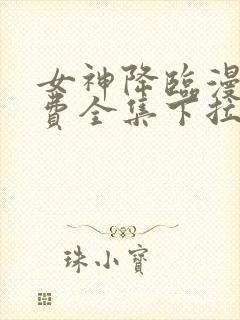 女神降臨漫
費全集下拉
珠小寶